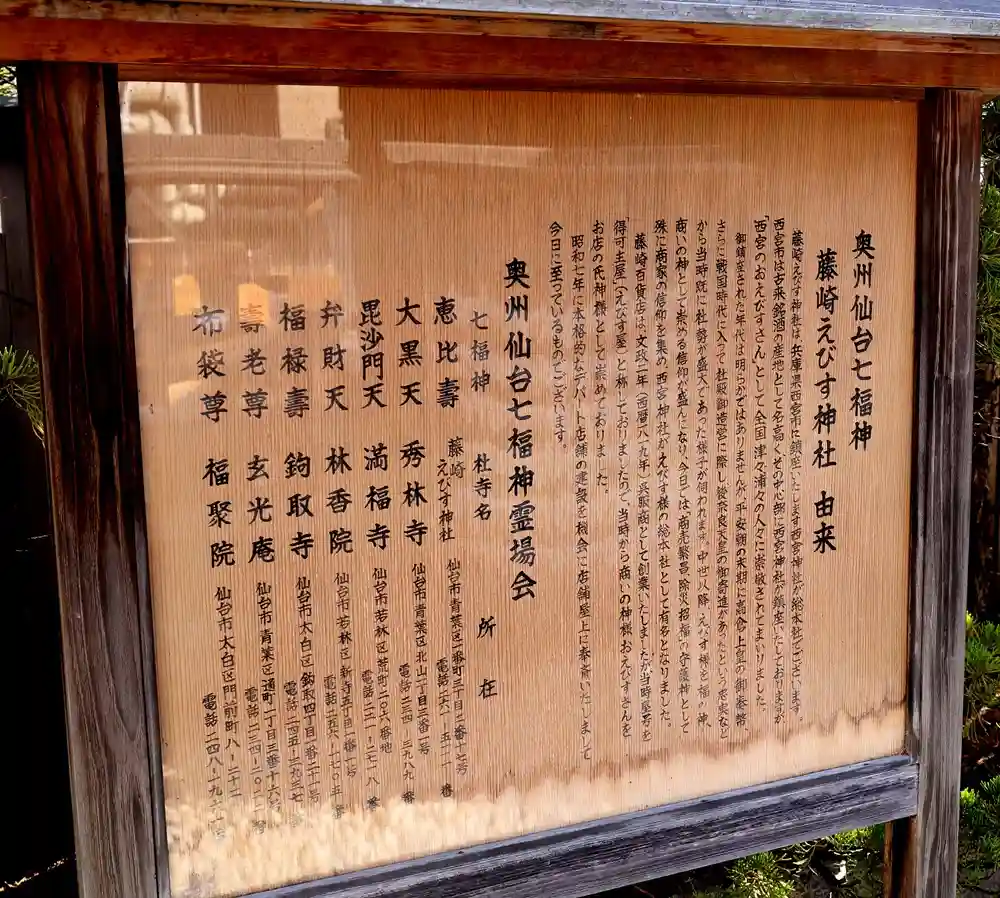 奥州仙台七福神
藤崎えびす神社 由来
藤崎えびす神社は、兵庫県西宮市に鎮座いたします西宮神社が総本社でございます。
西宮市は古来銘酒の産地として名高く、その中心部に西宮神社が鎮座いたしておりますが
「西宮のおえびすさん」として全国津々浦々の人々に崇敬されてまいりました。
御鎮座された年代は明らかではありませんが、平安朝の末期に高倉上皇の御奉幣、
さらに戦国時代に入って社殿御造営に際し後奈良天皇の御寄進があったという史実など
から当時既に社勢が盛大であった様子が伺われます。中世以降、えびす様を福の神、
商いの神として崇める信仰が盛んになり、今日では「商売繁昌・除災招福」の守護神として
殊に商家の信仰を集め、西宮神社がえびす様の総本社として有名となりました。
藤崎百貨店は、文政二年(西暦一八一九年)呉服商として創業いたしましたが当時屋号を
「得可主屋」(えびす屋)と称しておりましたので、当時から商いの神様おえびすさんを
お店の氏神様として崇めておりました。
昭和七年に本格的なデパート店舗の建築を機会に店舗屋上に奉斎いたしまして
今日に至っているものでございます。
奥州仙台七福神霊場会
七福神 社寺名 所在
恵比壽 藤崎えびす神社 仙台市青葉区一番町三丁目二番十七号
電話 二六一-五一一一番
大黒天 秀林寺 仙台市青葉区北山一丁目三番一号
電話 二三四-三九八九番
毘沙門天 満福寺 仙台市若林区荒町二〇六番地
電話 二二一-二七一八番
弁財天 林香院 仙台市若林区新寺五丁目一番一号
電話 二五六-一七〇五番
福禄壽 鉤取寺 仙台市太白区鉤取四丁目一番二十一号
電話 二四五-三九三七
壽老尊 玄光庵 仙台市青葉区通町一丁目三番十六号
電話 二三四-二〇二一
布袋尊 福聚院 仙台市太白区門前町八-二十二
電話 二四八-一九六一